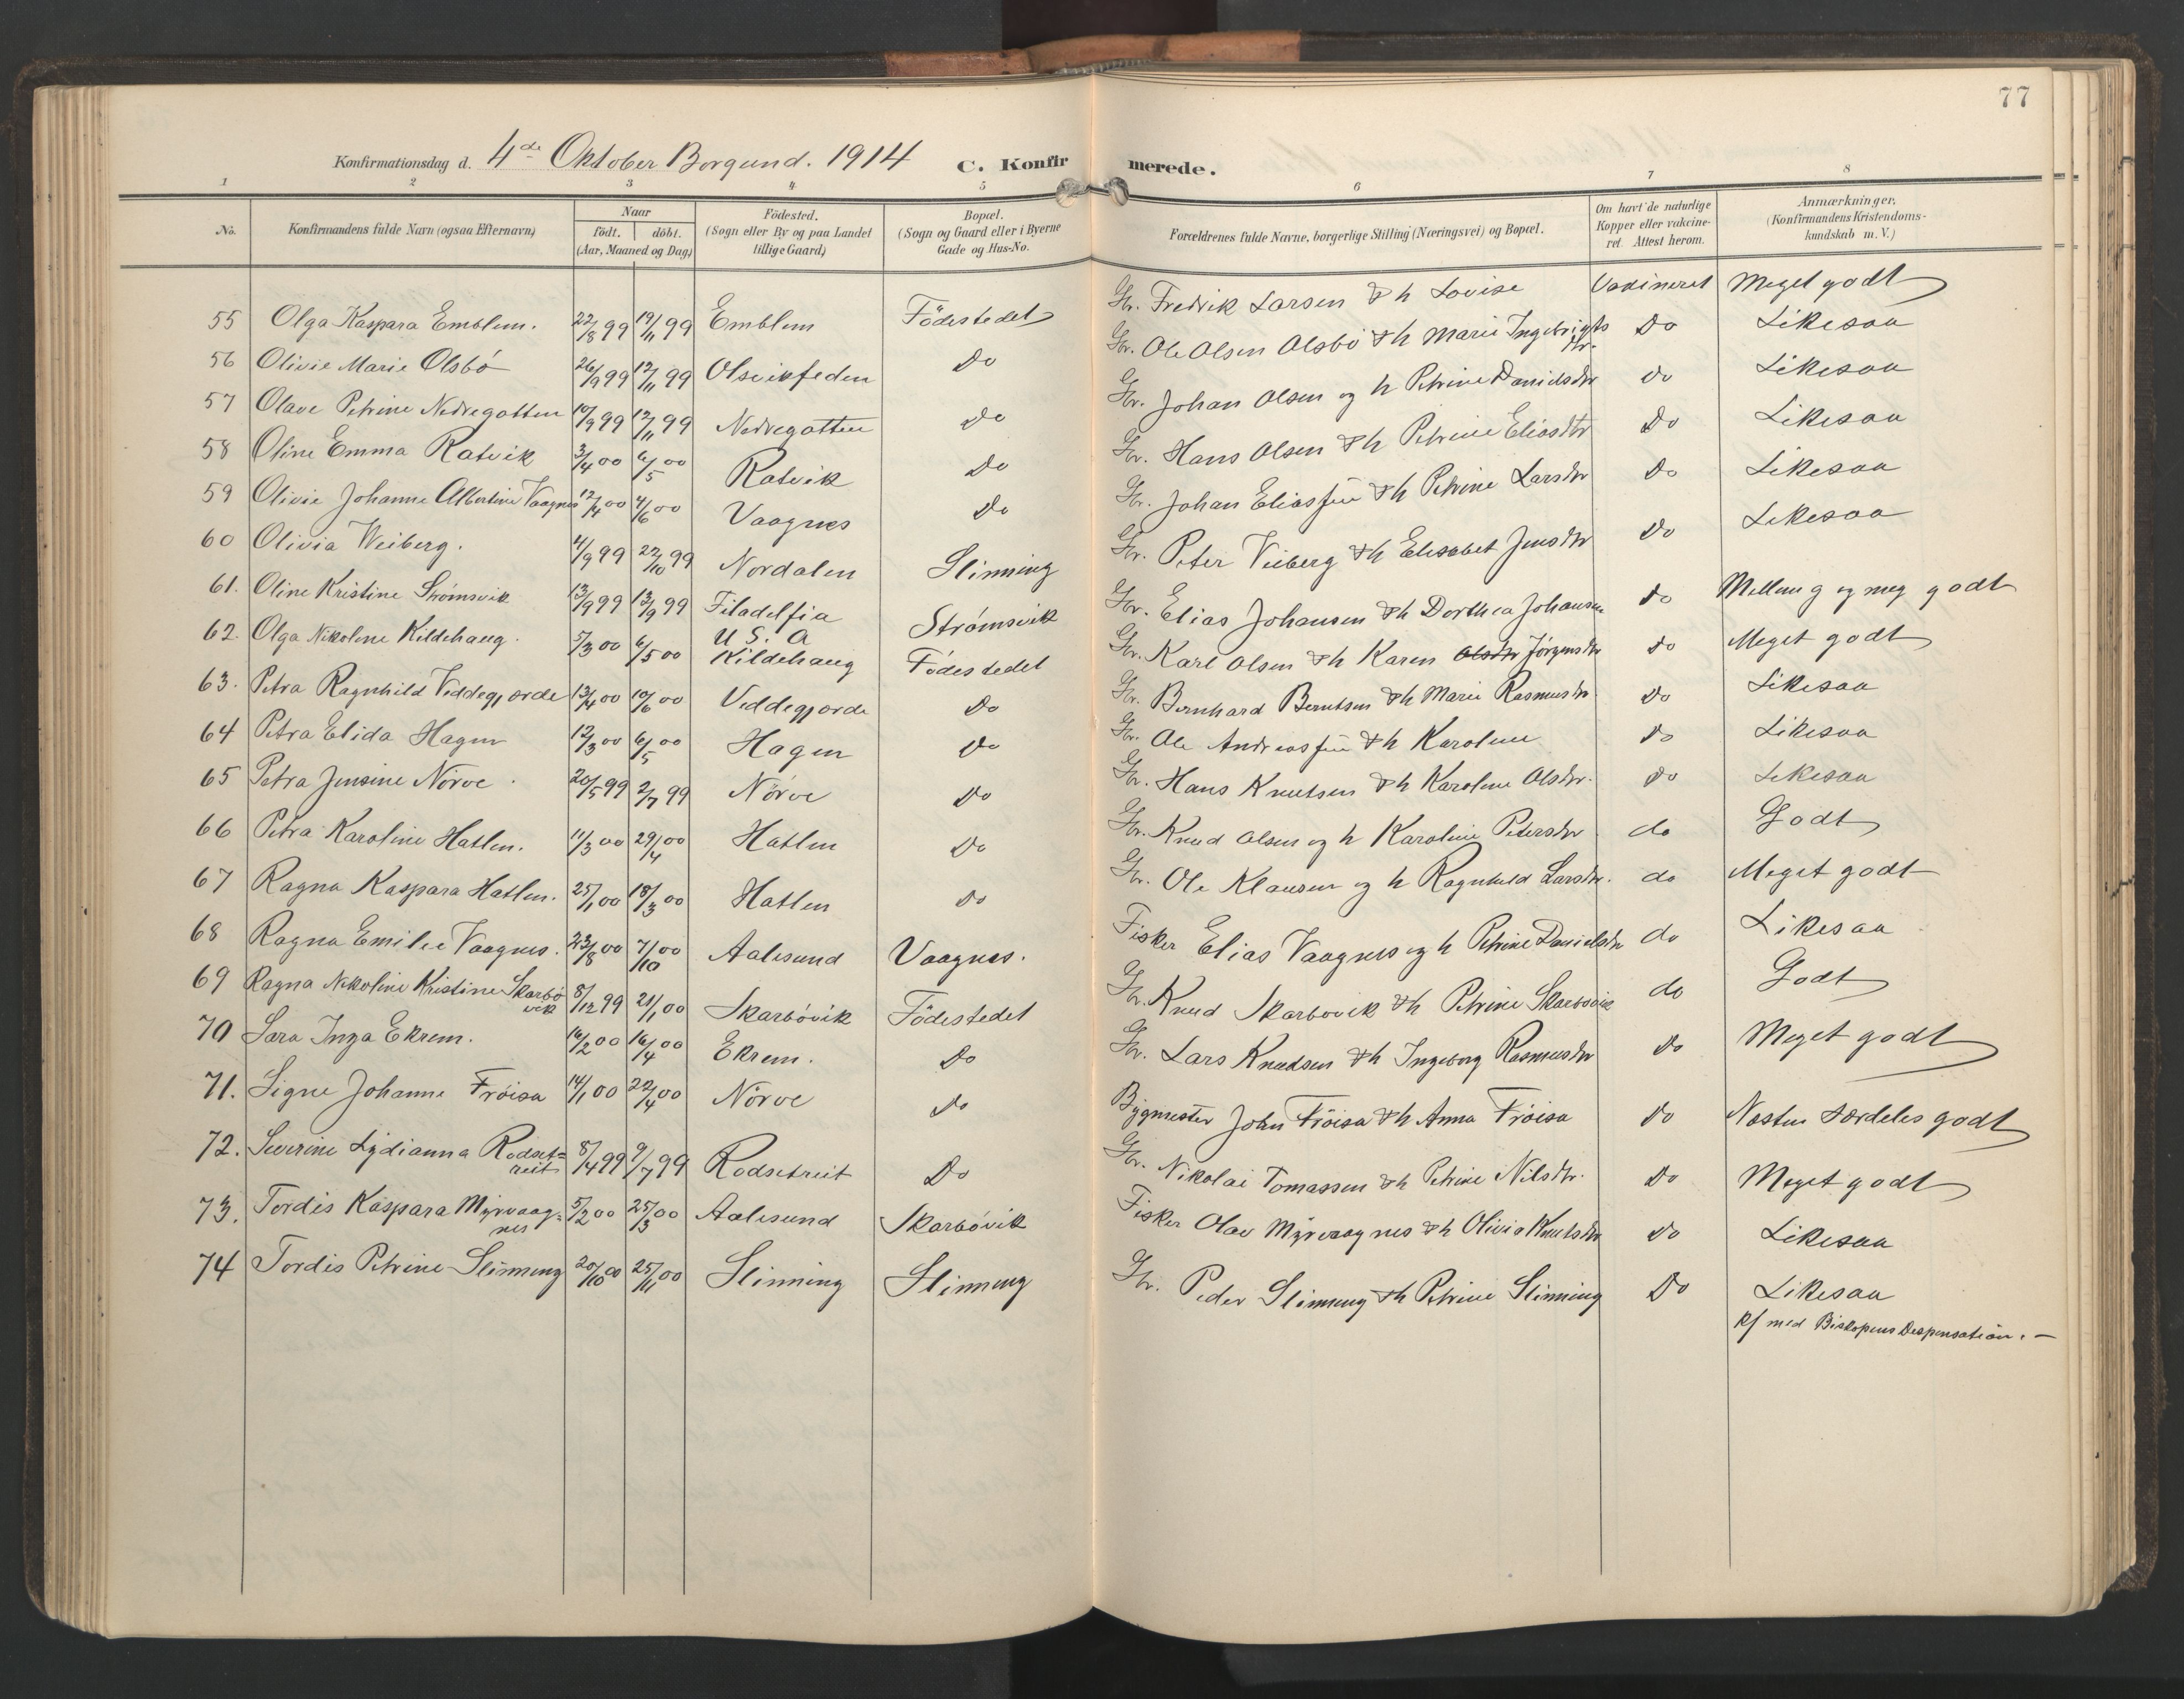 77
Konfirmationsdag d. 4de Oktober Borgund. 1914 C. Konfirmerede.
1 2 3 4 5 6 7 8
No. Konfirmandens fulde Navn (ogsaa Efternavn) Naar født. døbt. (Aar, Maaned og Dag) Fødested. (Sogn eller By og paa Landet tillige Gaard) Bopæl. (Sogn og Gaard eller i Byerne Gade og Hus-No. Forældrenes fulde Navne, borgerlige Stilling (Næringsvei) og Bopæl. Om havt de naturlige Kopper eller vakcineret. Attest herom. Anmærkninger. (Konfirmandens Kristendomskundskab m. V.)
55 Olga Kaspara Emblem. 22/8 99 19/11 99 Emblem Födestedet Gbr. Fredrik Larsen & h Lovise Vaxineret Meget godt
56 Olivie Marie Olsbö 26/9 99 12/11 99 Olsvikfeden Do Gbr. Ole Olsen Olsbö & h Marie Ingebrigtsdtr. Do Likesaa
57 Olave Petrine Nedregotten 10/9 99 12/11 99 Nedregotten Do Gbr. Johan Olsen og h Petrine Danielsdtr Do Likesaa
58 Oline Emma Ratvik 3/4 00 6/5 00 Ratvik Do Gbr. Hans Olsen & h Petrine Eliasdtr Do Likesaa
59 Olivie Johanne Albertine Vaagnes 12/4 00 4/6 00 Vaagnes Do Gbr. Johan Eliassen & h Petrine Larsdtr Do Likesaa
60 Olivia Weiberg. 4/9 99 22/10 99 Nordalen Slinning Gbr. Peter Veiberg & h Elisabet Jensdtr Do Likesaa
61. Oline Kristine Strømsvik 13/9 99 13/9 99 Filadelfia U S. A Strømsvik Gbr. Elias Johansen & h Dorthea Johansen Do Mellem g og meg godt
62. Olga Nikoline Kildehaug. 5/3 00 6/5 00 Kildehaug Födestedet Gbr. Karl Olsen & h Karen Olsdtr Jörgensdtr Do Meget godt
63. Petra Ragnhild Veddegjærde 13/4 00 10/6 00 Veddegjærde Do Gbr. Bernhard Berntsen & h Marie Rasmusdtr. Do Likesaa
64 Petra Elida Hagen 12/3 00 6/5 00 Hagen Do Gbr. Ole Andreassen & h Karoline Do Likesaa
65 Petra Jensine Nörve. 20/5 99 2/7 99 Nörve Do Gbr. Hans Knutsen & h Karoline Olsdtr. Do Likesaa
66 Petra Karoline Hatlen. 11/3 00 29/4 00 Hatlen Do Gbr. Knud Olsen og h Karoline Petersdtr do Godt
67 Ragna Kaspara Hatlen. 25/1 00 18/3 00 Hatlen Do Gbr. Ole Klausen og h Ragnhild Larsdtr. do Meget godt
68 Ragna Emilie Vaagnes. 23/8 00 7/10 00 Aalesund Vaagnes. Fisker Elias Vaagnes og h Petrine Danielsdtr do Likesaa
69 Ragna Nikoline Kristine Skarbövik 8/12 99 21/1 00 Skarbövik Födestedet Gbr. Knud Skarbövik & h Petrine Skarbövik do Godt
70 Sara Inga Ekrem. 16/2 00 16/4 00 Ekrem. Do Gbr. Lars Knudsen & h Ingeborg Rasmusdtr Do Meget godt
71. Signe Johanne Fröisa 14/1 00 22/4 00 Nörve Do Bygmester John Fröisa & h Anna Fröisa Do Næsten særdeles godt
72. Severine Lydianna Rodsetreit 8/4 99 9/7 99 Rodsetreit Do Gbr. Nikolai Tomassen & h Petrine Nilsdtr. Do Meget godt
73. Tordis Kaspara Myrvaagnes 5/2 00 25/3 00 Aalesund Skarbövik Fisker Olav Myrvaagnes & h Olivia Knutsdtr Do Likesaa
74 Tordis Petrine Slinning 20/10 00 25/11 00 Slinning Slinning Gbr. Peder Slinning & h Petrine Slinning Do Likesaa
Kf med Biskopens Dispensation. —